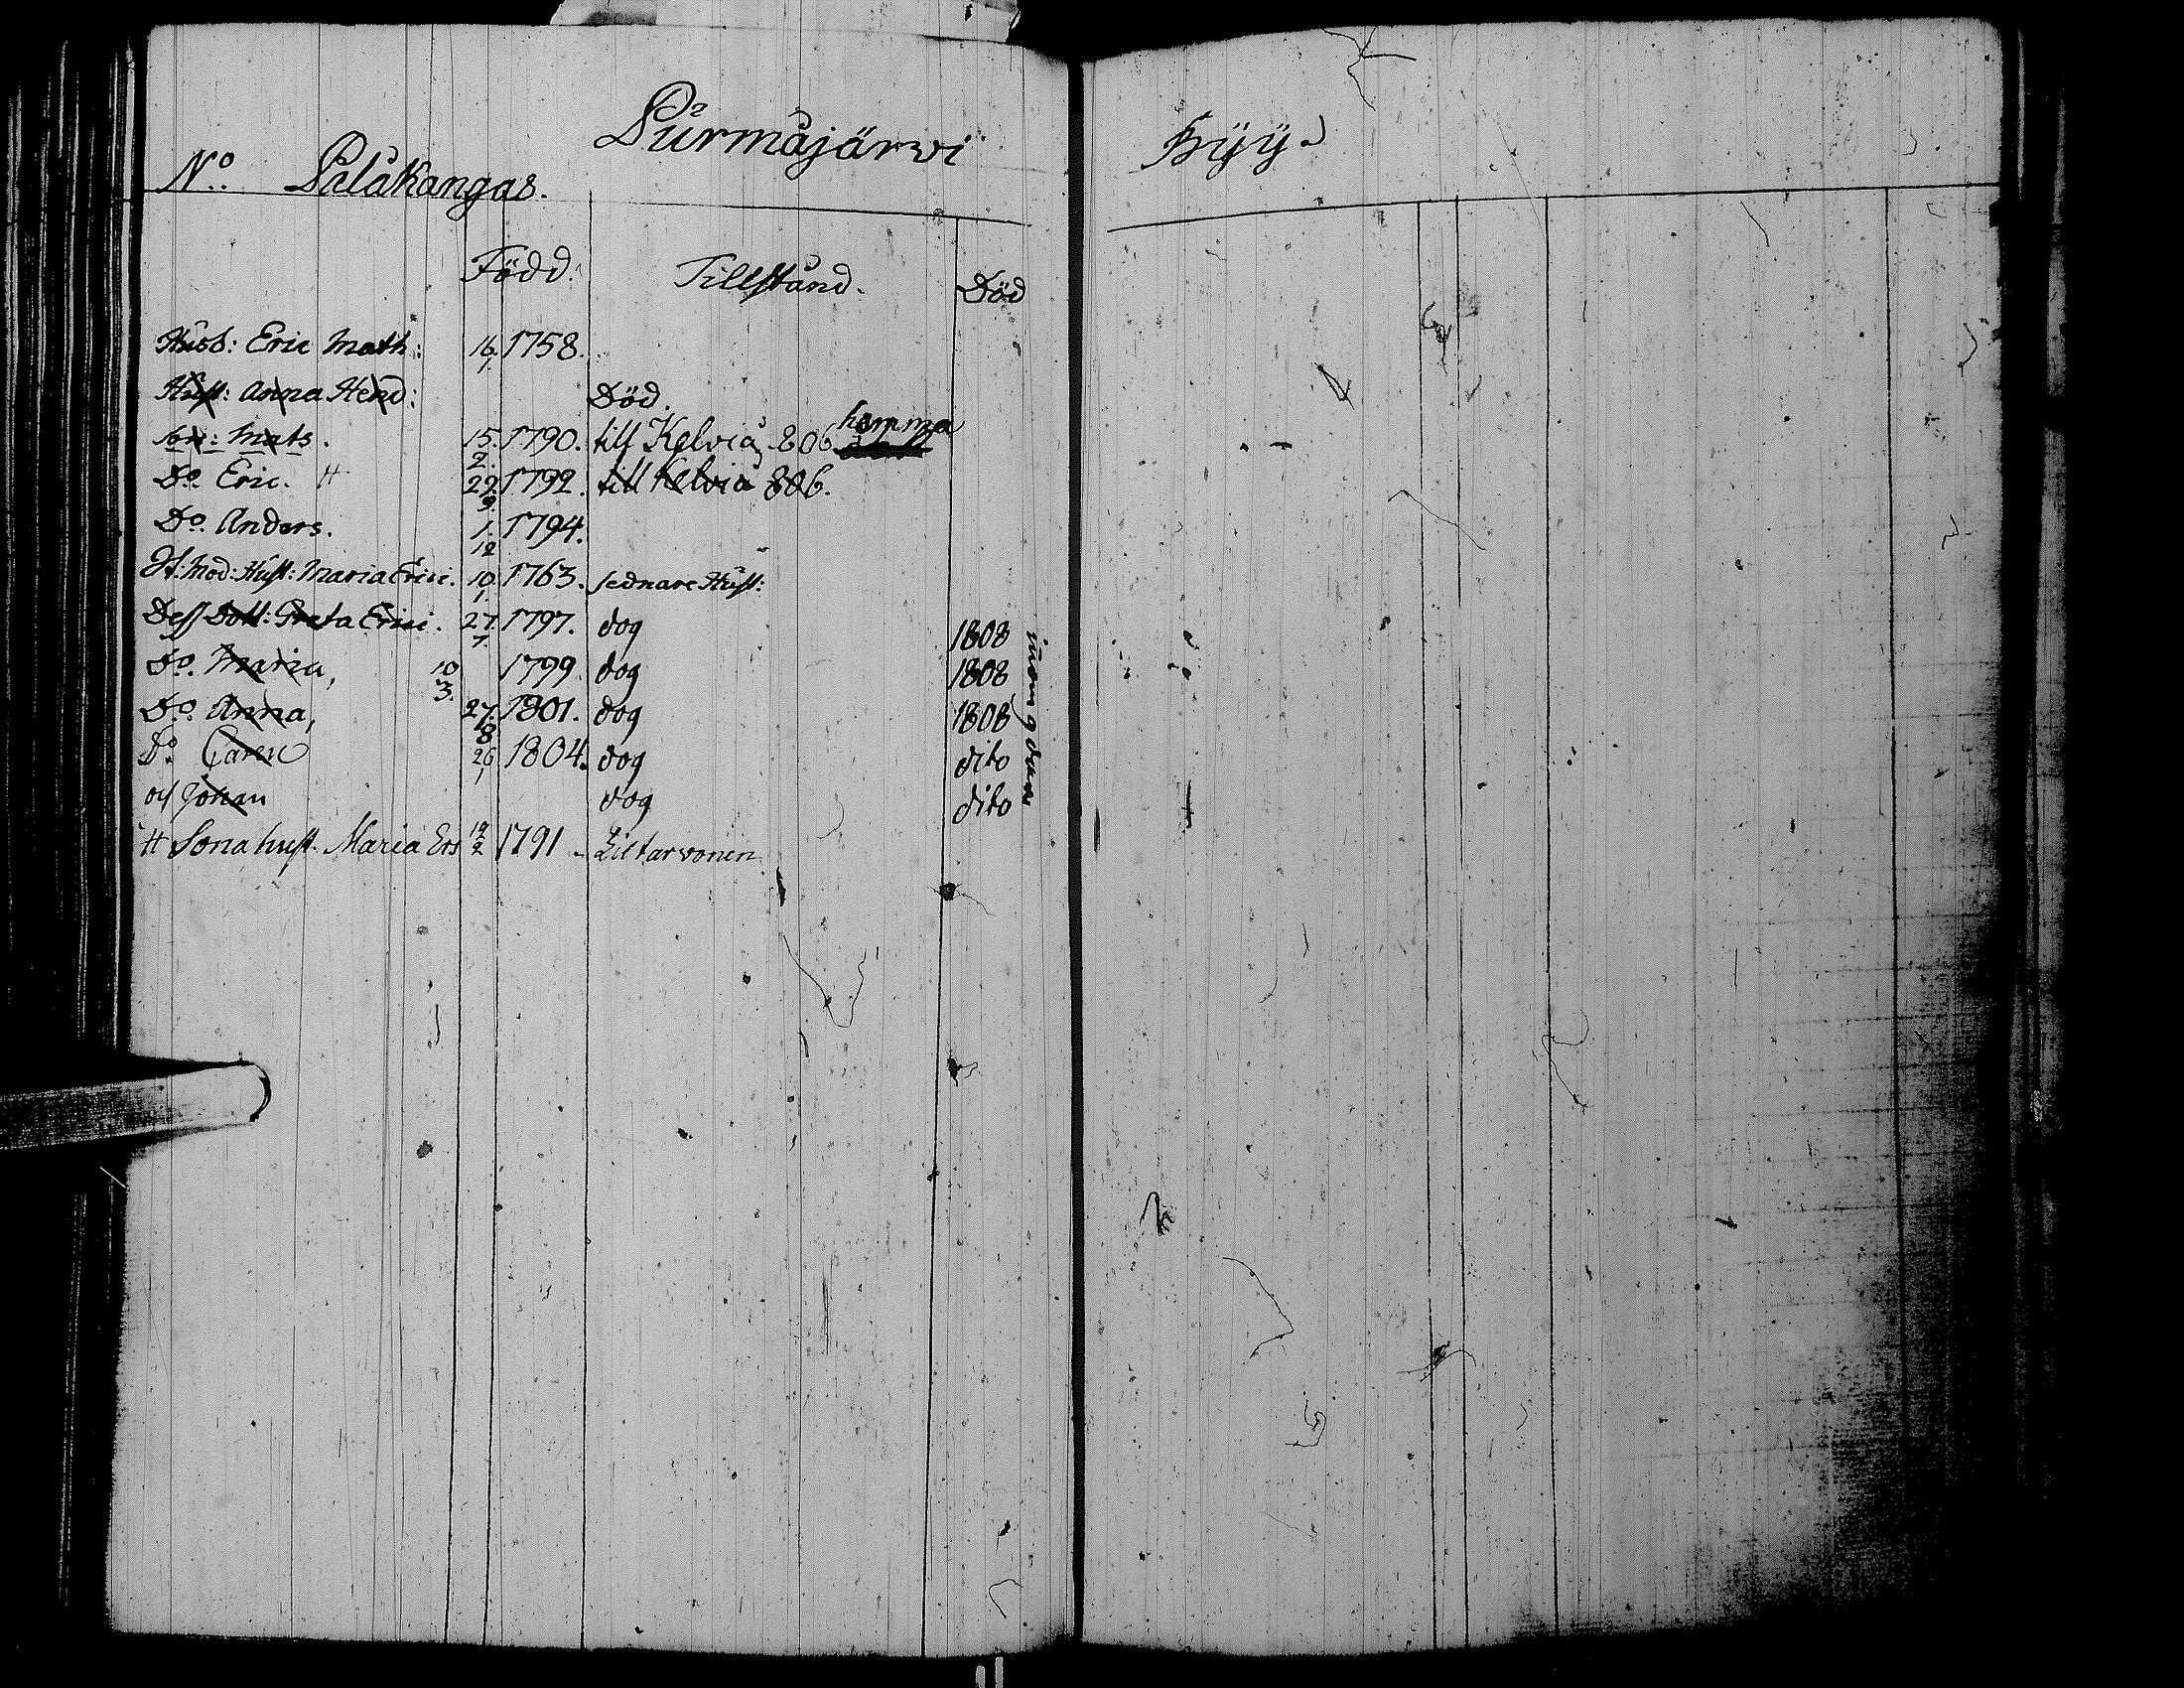 Purmåjärwi Byy.
No. Palåkangas.
Född. Tillstånd. Död
Husb: Eric Math: 16/1. 1758.
Hust: Anna Hend: Död.
son: Mats. 15/2. 1790. till Kelviå 806 hemma
Do. Eric. # 29/9. 1792. till Kelviå 806.
Do. Anders. 1/12. 1794.
St: Mod: Hust: Maria Erici. 10/1. 1763. sednare Hust:
Dess Dott: Greta Erici. 27/7. 1797. dog 1808
Do. Maria, 10/3. 1799. dog 1808
Do. Anna, 27/8. 1801. dog 1808
Do Caren 26/1 1804. dog dito
oç Johan dog dito
inom 9 dvar
# Sona hust. Maria Ers 12/2 1791 - Lill tarvonen